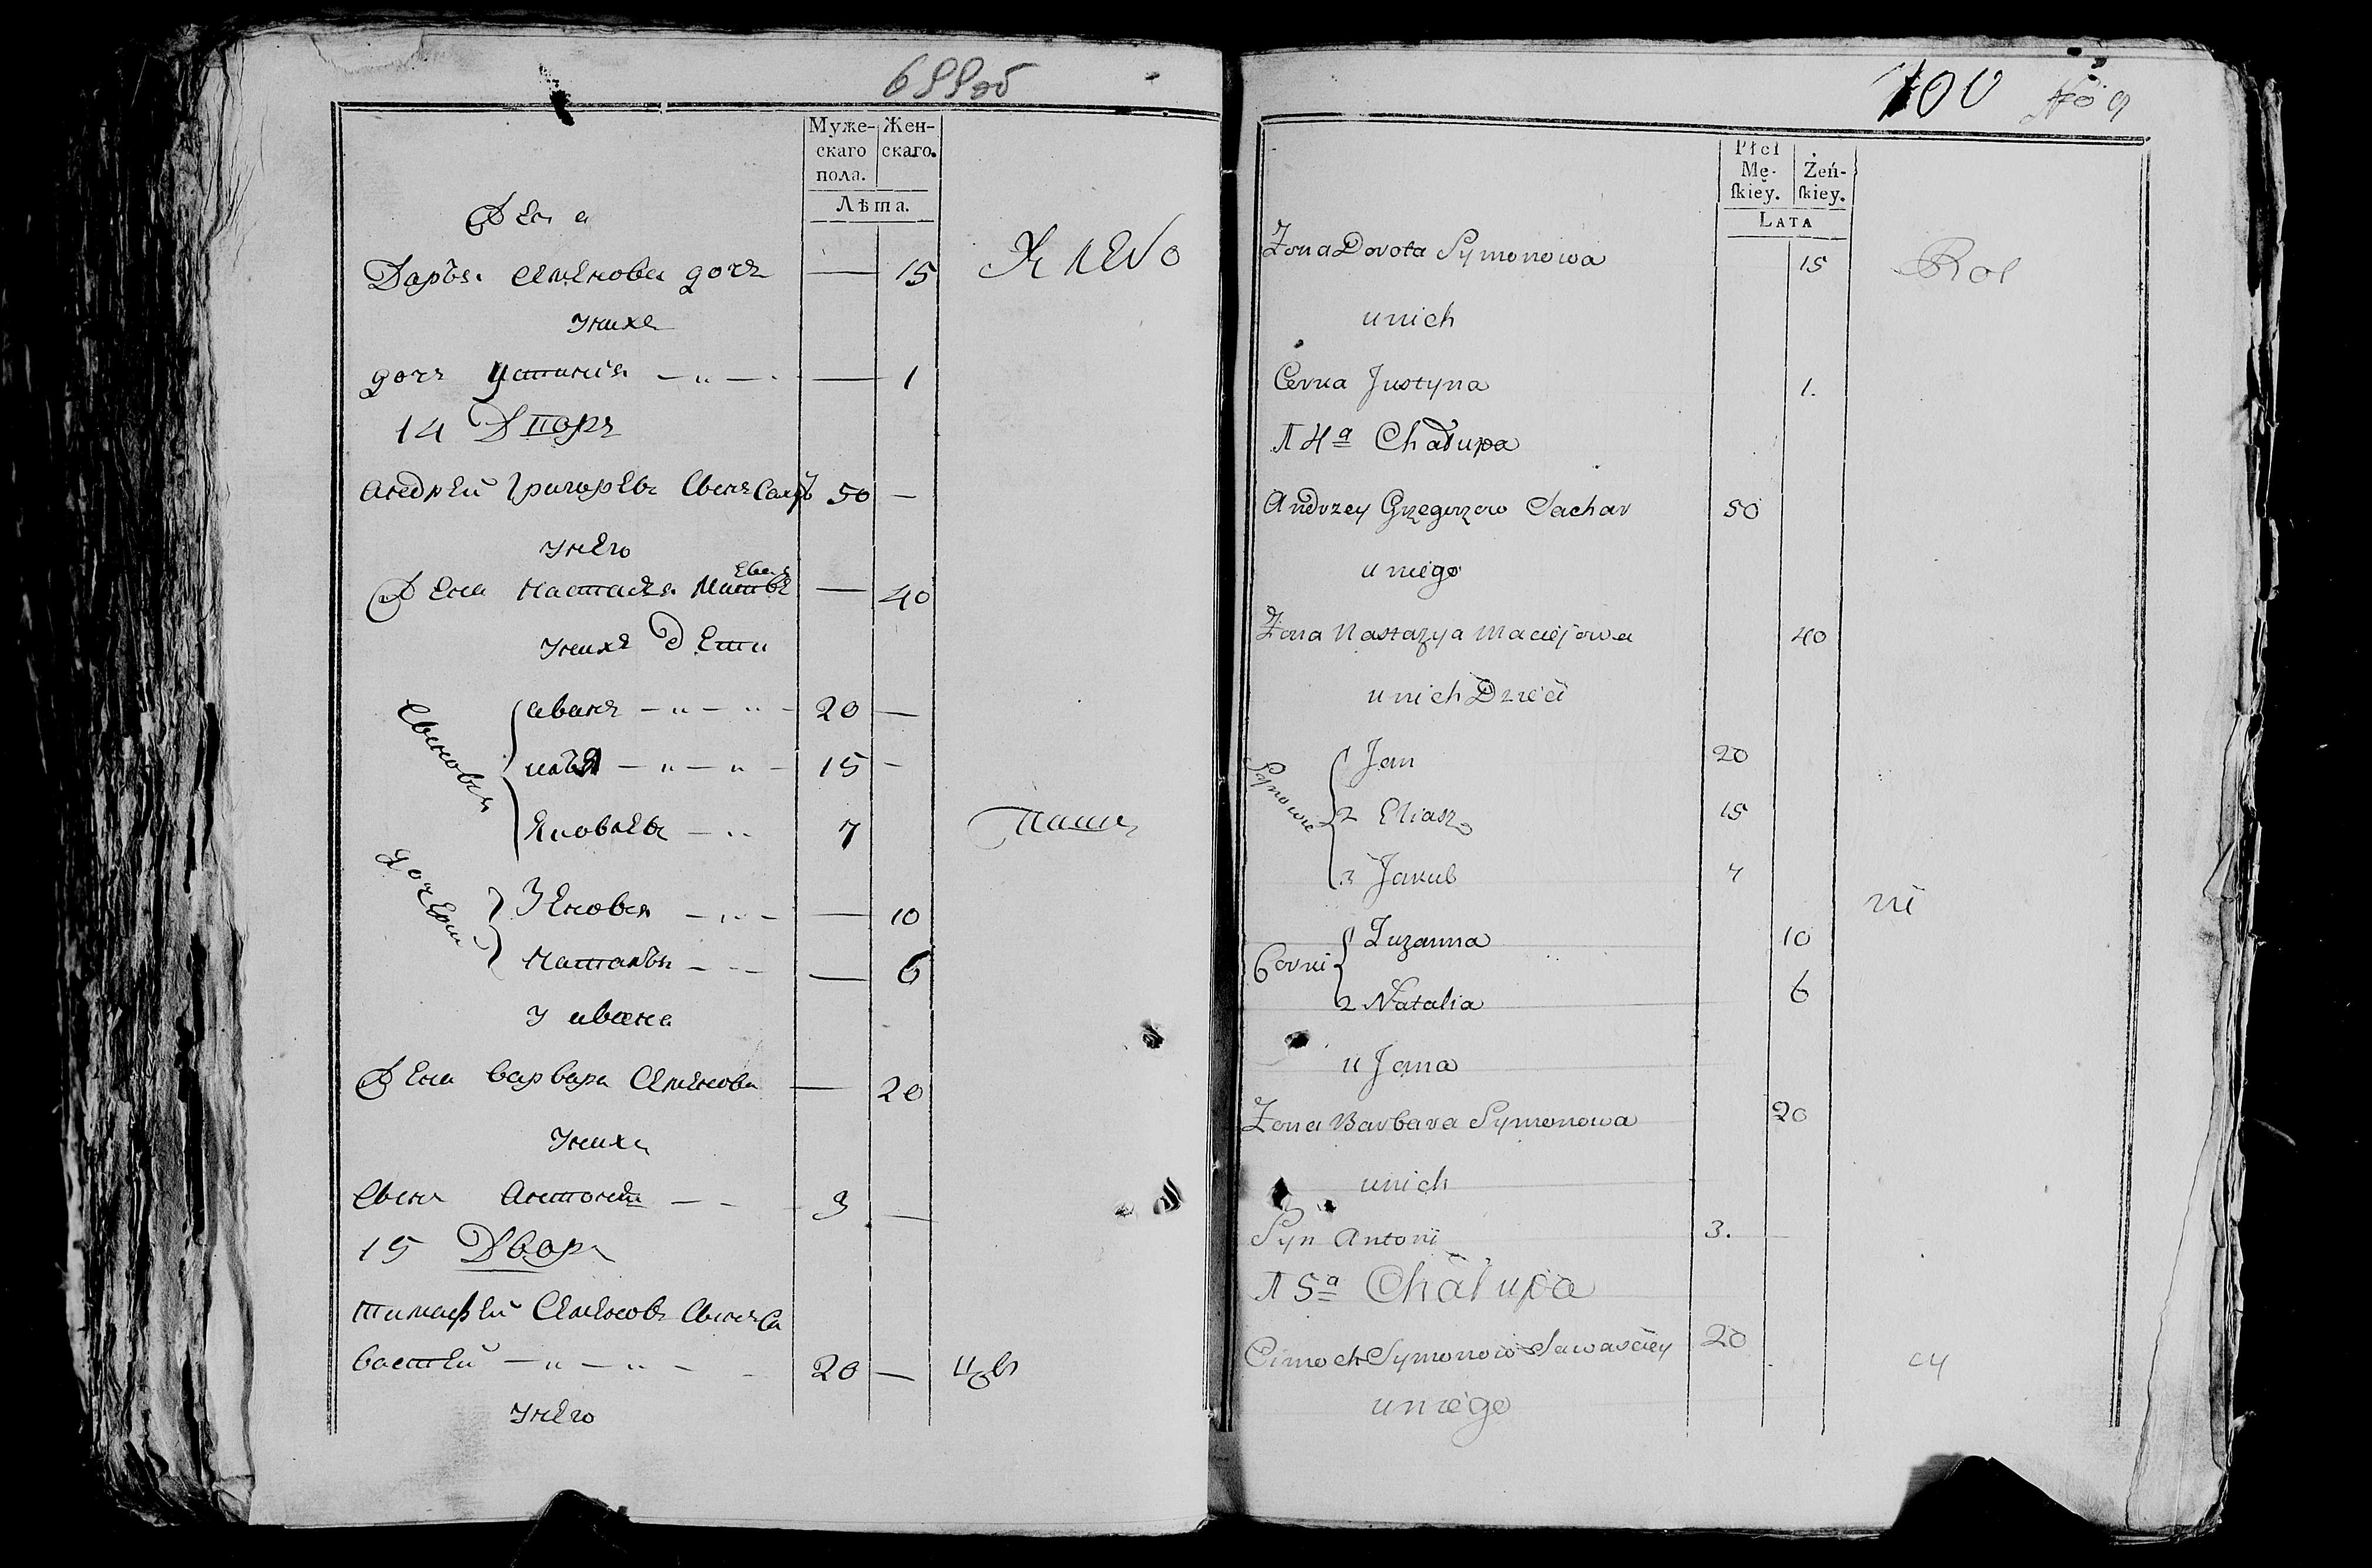 699об
Муже-
скаго
пола.
Жен-
скаго.
Лѣта.
Жена
Дарья Семенова дочь — 15
У нихъ
дочь Устинья — „ — — 1
14 Дворъ
Андрей Григорьевъ Сынъ Сахаръ 50 —
У него
Жена Настасья Матвѣева — 40
У нихъ дети
Сыновья
Иванъ — „ — „ — 20 —
Илья — „ — „ — 15 —
Яковлевъ — „ 7
Дочери
Зеновья — „ — — 10
Наталья — — 6
У ивана
Жена Варвара Семенова — 20
У нихъ
Сынъ Антонъ — — 3 —
15 Дворъ
Тимафей Семеновъ Сынъ Са
вастей — „ — „ — 20 —
У него
100
Płci
Mę-
skiey.
Żeń-
skiey.
LATA
Żona Dorota Symonowa 15
u nich
Corka Justyna 1.
14a Chałupa
Andrzey Grzegorzow Sachar 50
u niego
Żona Nastazya Maciejowa 40
u nich Dzieci
Synowie
1 Jan 20
2 Eliasz 15
3 Jakub 7
Corki
1 Zuzanna 10
2 Natalia 6
u Jana
Żona Barbara Symonowa 20
u nich
Syn Antoni 3.
15a Chałupa
Cimoch Symonow Sawaściey 20
u niego